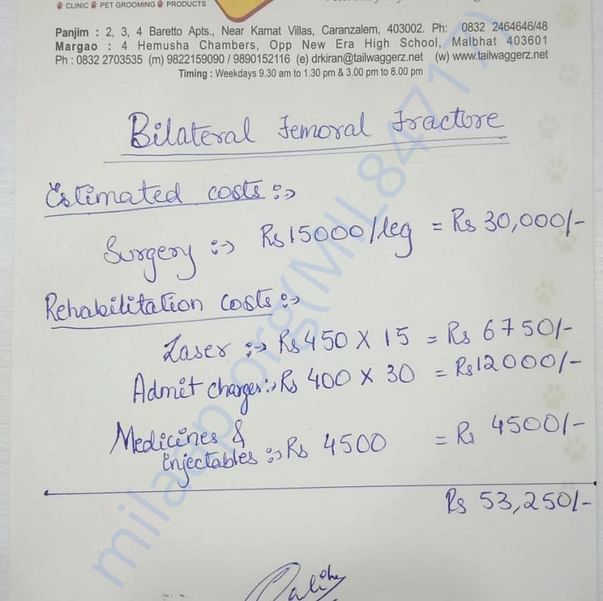 CLINIC PET GROOMING PRODUCTS
Panjim : 2, 3, 4 Baretto Apts., Near Kamat Villas, Caranzalem, 403002. Ph: 0832 2464646/48
Margao : 4 Hemusha Chambers, Opp New Era High School, Malbhat 403601
Ph : 0832 2703535 (m) 9822159090 / 9890152116 (e) drkiran@tailwaggerz.net (w) www.tailwaggerz.net
Timing : Weekdays 9.30 am to 1.30 pm & 3.00 pm to 8.00 pm
Bilateral Femoral Fracture
Estimated costs :->
Surgery :-> Rs 15000/leg = Rs 30,000/-
Rehabilitation costs :->
Laser :-> Rs 450 X 15 = Rs 6750/-
Admit charges :-> Rs 400 X 30 = Rs 12000/-
Medicines &
injectables :-> Rs 4500 = Rs 4500/-
Rs 53,250/-
milaap.org(MIL84717)